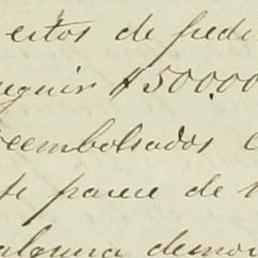 estos de pedi
seguir $50.000
reembolsados c
te parece de
alguna demor